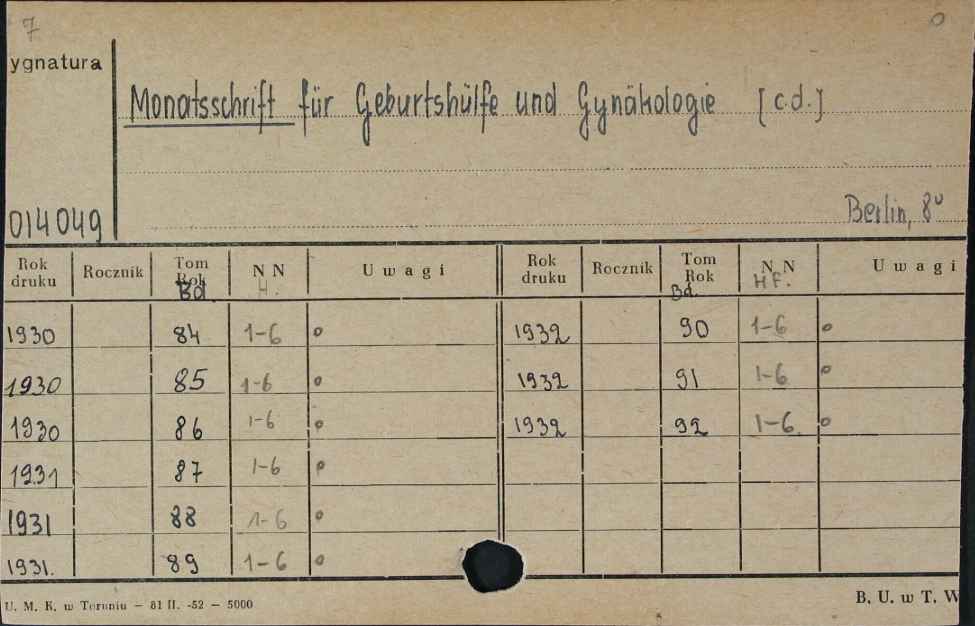 7 0
ygnatura
Monatsschrift für Geburtshülfe und Gynäkologie [c.d.]
014049 Berlin, 8°
Rok druku Rocznik Tom Rok Bd N N H. Uwagi Rok druku Rocznik Tom Rok Bd. N N HF. Uwagi
1930 84 1-6 o 1932 90 1-6 o
1930 85 1-6 o 1932 91 1-6 o
1930 86 1-6 o 1932 92 1-6. o
1931 87 1-6 o
1931 88 1-6 o
1931. 89 1-6 o
U. M. K. w Toruniu — 81 II. -52 — 5000 B. U. w T. W